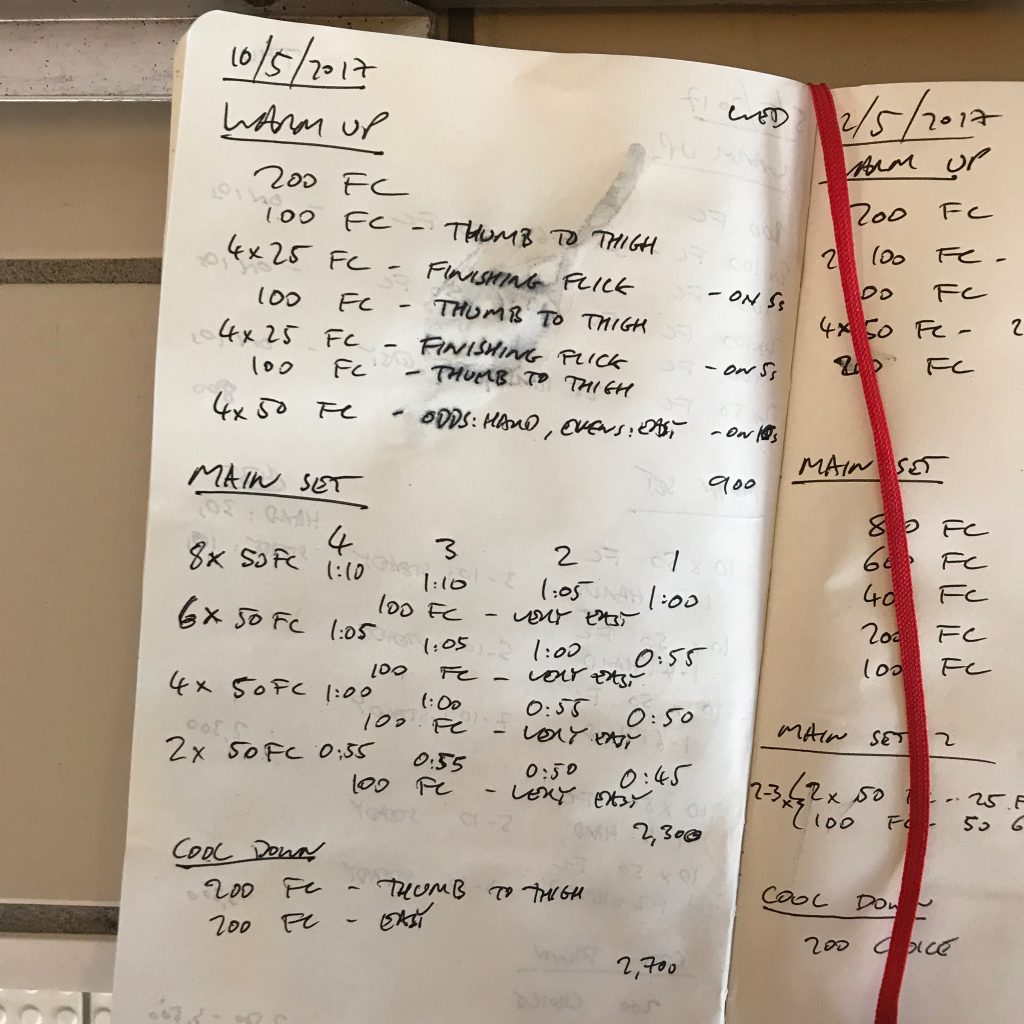 10/5/2017
WED
WARM UP
200 FC
100 FC - THUMB TO THIGH
4x25 FC - FINISHING FLICK - ON 5s
100 FC - THUMB TO THIGH
4x25 FC - FINISHING FLICK - ON 5s
100 FC - THUMB TO THIGH
4x50 FC - ODDS: HARD, EVENS: EASY - ON 10s
900
MAIN SET
4 3 2 1
8x 50FC 1:10 1:10 1:05 1:00
100 FC - VERY EASY
6x 50FC 1:05 1:05 1:00 0:55
100 FC - VERY EASY
4x 50FC 1:00 1:00 0:55 0:50
100 FC - VERY EASY
2x 50FC 0:55 0:55 0:50 0:45
100 FC - VERY EASY
2,300
COOL DOWN
200 FC - THUMB TO THIGH
200 FC - EASY
2,700
2/5/2017
WARM UP
200 FC
100 FC -
FC
4x50 FC - 2
FC
MAIN SET
800 FC
600 FC
400 FC
200 FC
100 FC
MAIN SET 2
2x 50 - 25 F
100 FC - 50
COOL DOWN
200 CHOICE